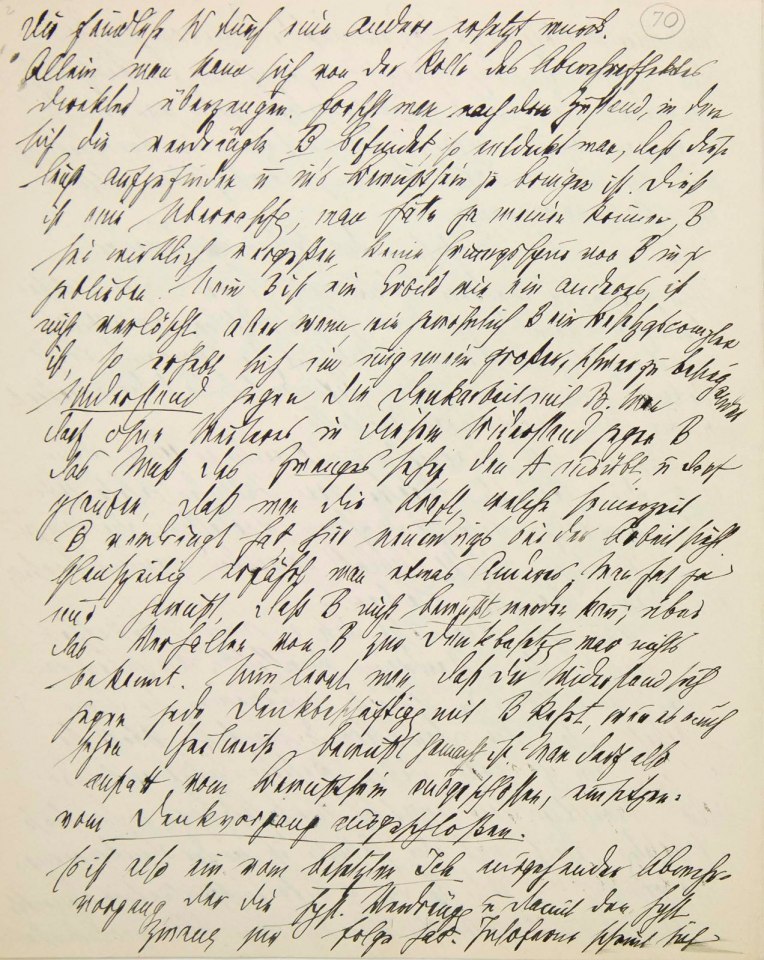 70
die feindliche W durch eine andere ersetzt wurde.
Allein man kann sich von der Rolle des Abwehraffektes
direkter überzeugen. Forscht man nach dem Zustand, in dem
sich die verdrängte B befindet, so entdeckt man, daß diese
leicht aufzufinden u ins Bewußtsein zu bringen ist. Dieß
ist eine Überraschg, man hätte ja meinen können, B
sei wirklich vergessen, keine Erinrgsspur von B in ψ
geblieben. Nein B ist ein Erbild wie ein anderes, ist
nicht verlöscht aber wenn wie gewöhnlich B ein Besetzgscomplex
ist, so erhebt sich ein ungemein großer, schwer zu besei-
gender
Widerstand gegen die Denkarbeit mit B. Man
darf ohne Weiteres in diesem Widerstand gegen B
das Maß des Zwanges sehen, den A ausübt, u darf
glauben, daß man die Kraft, welche seinerzeit
B verdrängt hat, hier neuerdings bei der Arbeit sieht
Gleichzeitig erfährt man etwas Anderes. Man hat ja
nur gewußt, daß B nicht bewußt werden kan; über
das Verhalten von B zur Denkbesetzg war nichts
bekannt. Nun lernt man, daß der Widerstand sich
gegen jede Denkbeschäftigg mit B kehrt, wenn es auch
schon theilweise bewußt gemacht ist. Man darf also
anstatt vom Bewußtsein ausgeschlossen, einsetzen:
vom Denkvorgang ausgeschloßen.
Es ist also ein vom besetzten Ich ausgehender Abwehr-
vorgang der die hyst. Verdrängg u damit den hyst
Zwang zur Folge hat. Insoferne scheint sich